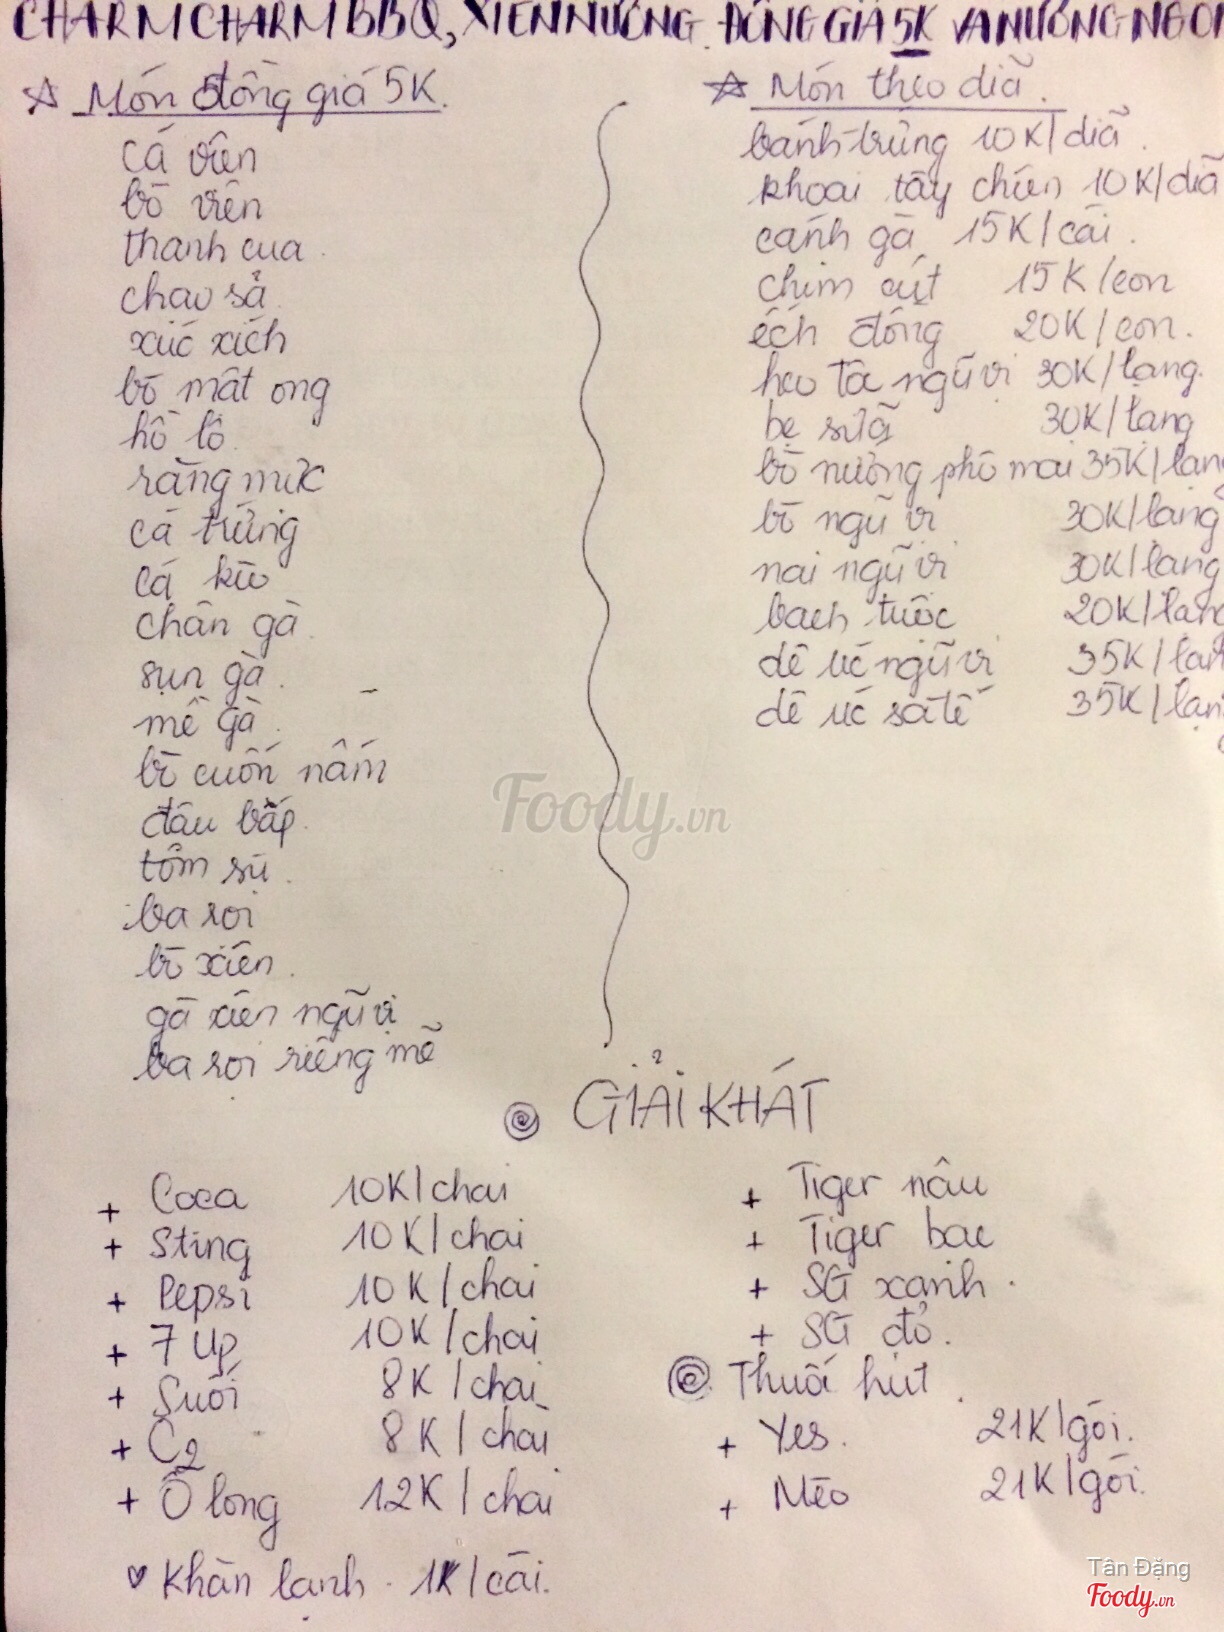 CHARMCHARM BBQ, XIÊN NƯỚNG ĐỒNG GIÁ 5K VÀ NƯỚNG NGON
☆ Món đồng giá 5K.
cá viên
bò viên
thanh cua
chao sả
xúc xích
bò mật ong
hồ lô
răng mực
cá trứng
cá kèo
chân gà
sụn gà
mề gà
bò cuốn nấm
đậu bắp
tôm sú
ba rọi
bò xiên
gà xiên ngũ vị
ba rọi riềng mẻ
☆ Món theo dĩa.
bánh tráng 10K/dĩa
khoai tây chiên 10K/dĩa
cánh gà 15K/cái
chim cút 15K/con
ếch đồng 20K/con.
heo tộc ngũ vị 30K/lạng.
bẹ sữa 30K/lạng
bò nướng phô mai 35K/lạng
bò ngũ vị 30K/lạng
nai ngũ vị 30K/lạng
bạch tuộc 20K/lạng
dê úc ngũ vị 35K/lạng
dê úc sa tế 35K/lạng
Foody.vn
GIẢI KHÁT
+ Coca 10K/chai
+ Sting 10K/chai
+ Pepsi 10K/chai
+ 7 Up 10K/chai
+ Suối 8K/chai
+ C2 8K/chai
+ Ô long 12K/chai
♥ Khăn lạnh . 1K/cái.
+ Tiger nâu
+ Tiger bạc
+ SG xanh.
+ SG đỏ.
Thuốc hút
+ Yes. 21K/gói.
+ Mèo 21K/gói.
Tân Đặng
Foody.vn